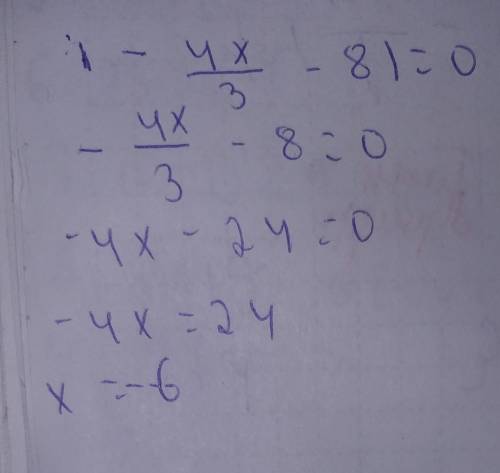 | - 4x/3 - 8| = 0
- 4x/3 - 8 = 0
-4x - 24 = 0
-4x = 24
x = -6